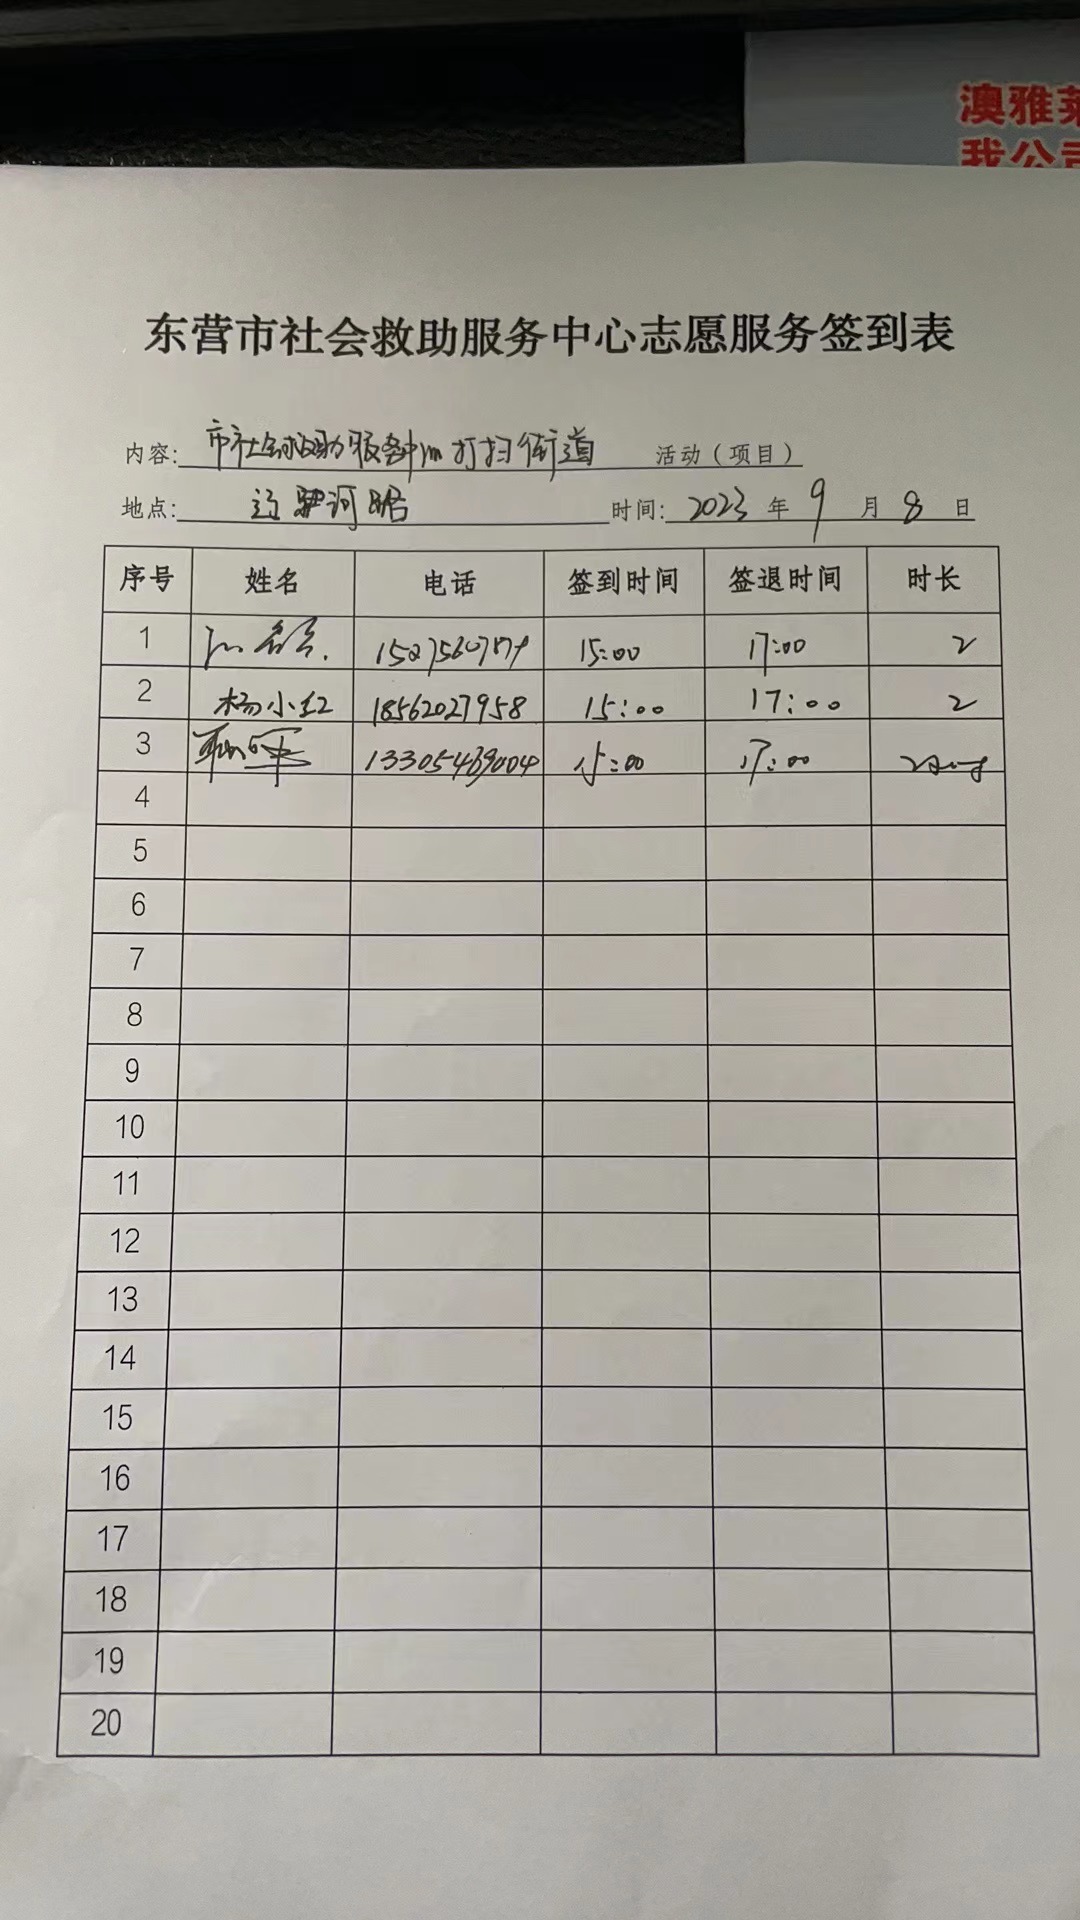 澳雅莱
我公司
东营市社会救助服务中心志愿服务签到表
内容: 市社会救助服务中心打扫街道 活动（项目）
地点: 路 时间: 2023 年 9 月 8 日
序号 姓名 电话 签到时间 签退时间 时长
1 15:00 17:00 2
2 杨小红 18562027958 15:00 17:00 2
3 13305469004 15:00 17:00
4
5
6
7
8
9
10
11
12
13
14
15
16
17
18
19
20